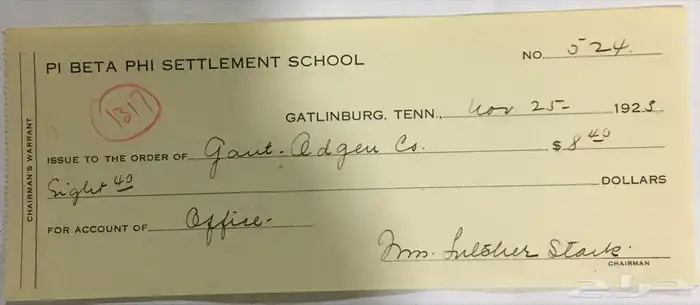 PI BETA PHI SETTLEMENT SCHOOL
NO. 524
1317
GATLINBURG, TENN., Nov 25- 1923
CHAIRMAN'S WARRANT
ISSUE TO THE ORDER OF Gaut-Ogden Co. $ 8 40
Eight 40 DOLLARS
FOR ACCOUNT OF Office-
Stark
CHAIRMAN
حراج